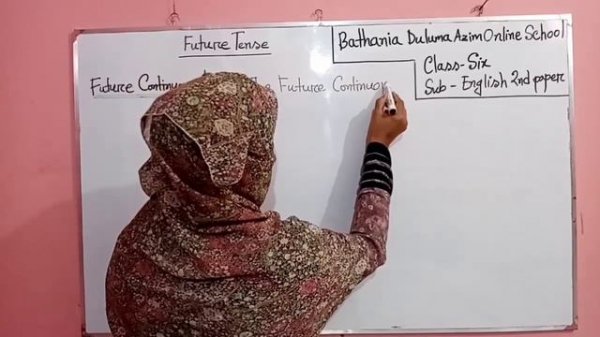 Future Tense
Bathania Duluma Azim Online School
Class-Six
Sub - English 2nd paper
Future Continu The Future Continuo